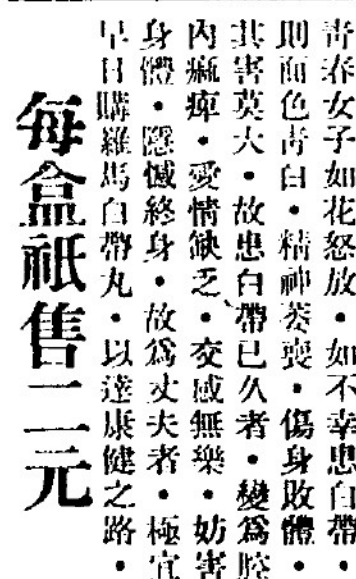 青春女子如花怒放・如不幸患白帶・
則面色青白・精神萎喪・傷身敗體・
其害莫大・故患白帶已久者・變爲腔
內痲痺・愛情缺乏・交感無樂・妨害
身體・隱憾終身・故爲丈夫者・極宜
早日購羅馬白帶丸・以達康健之路・
每盒祇售二元